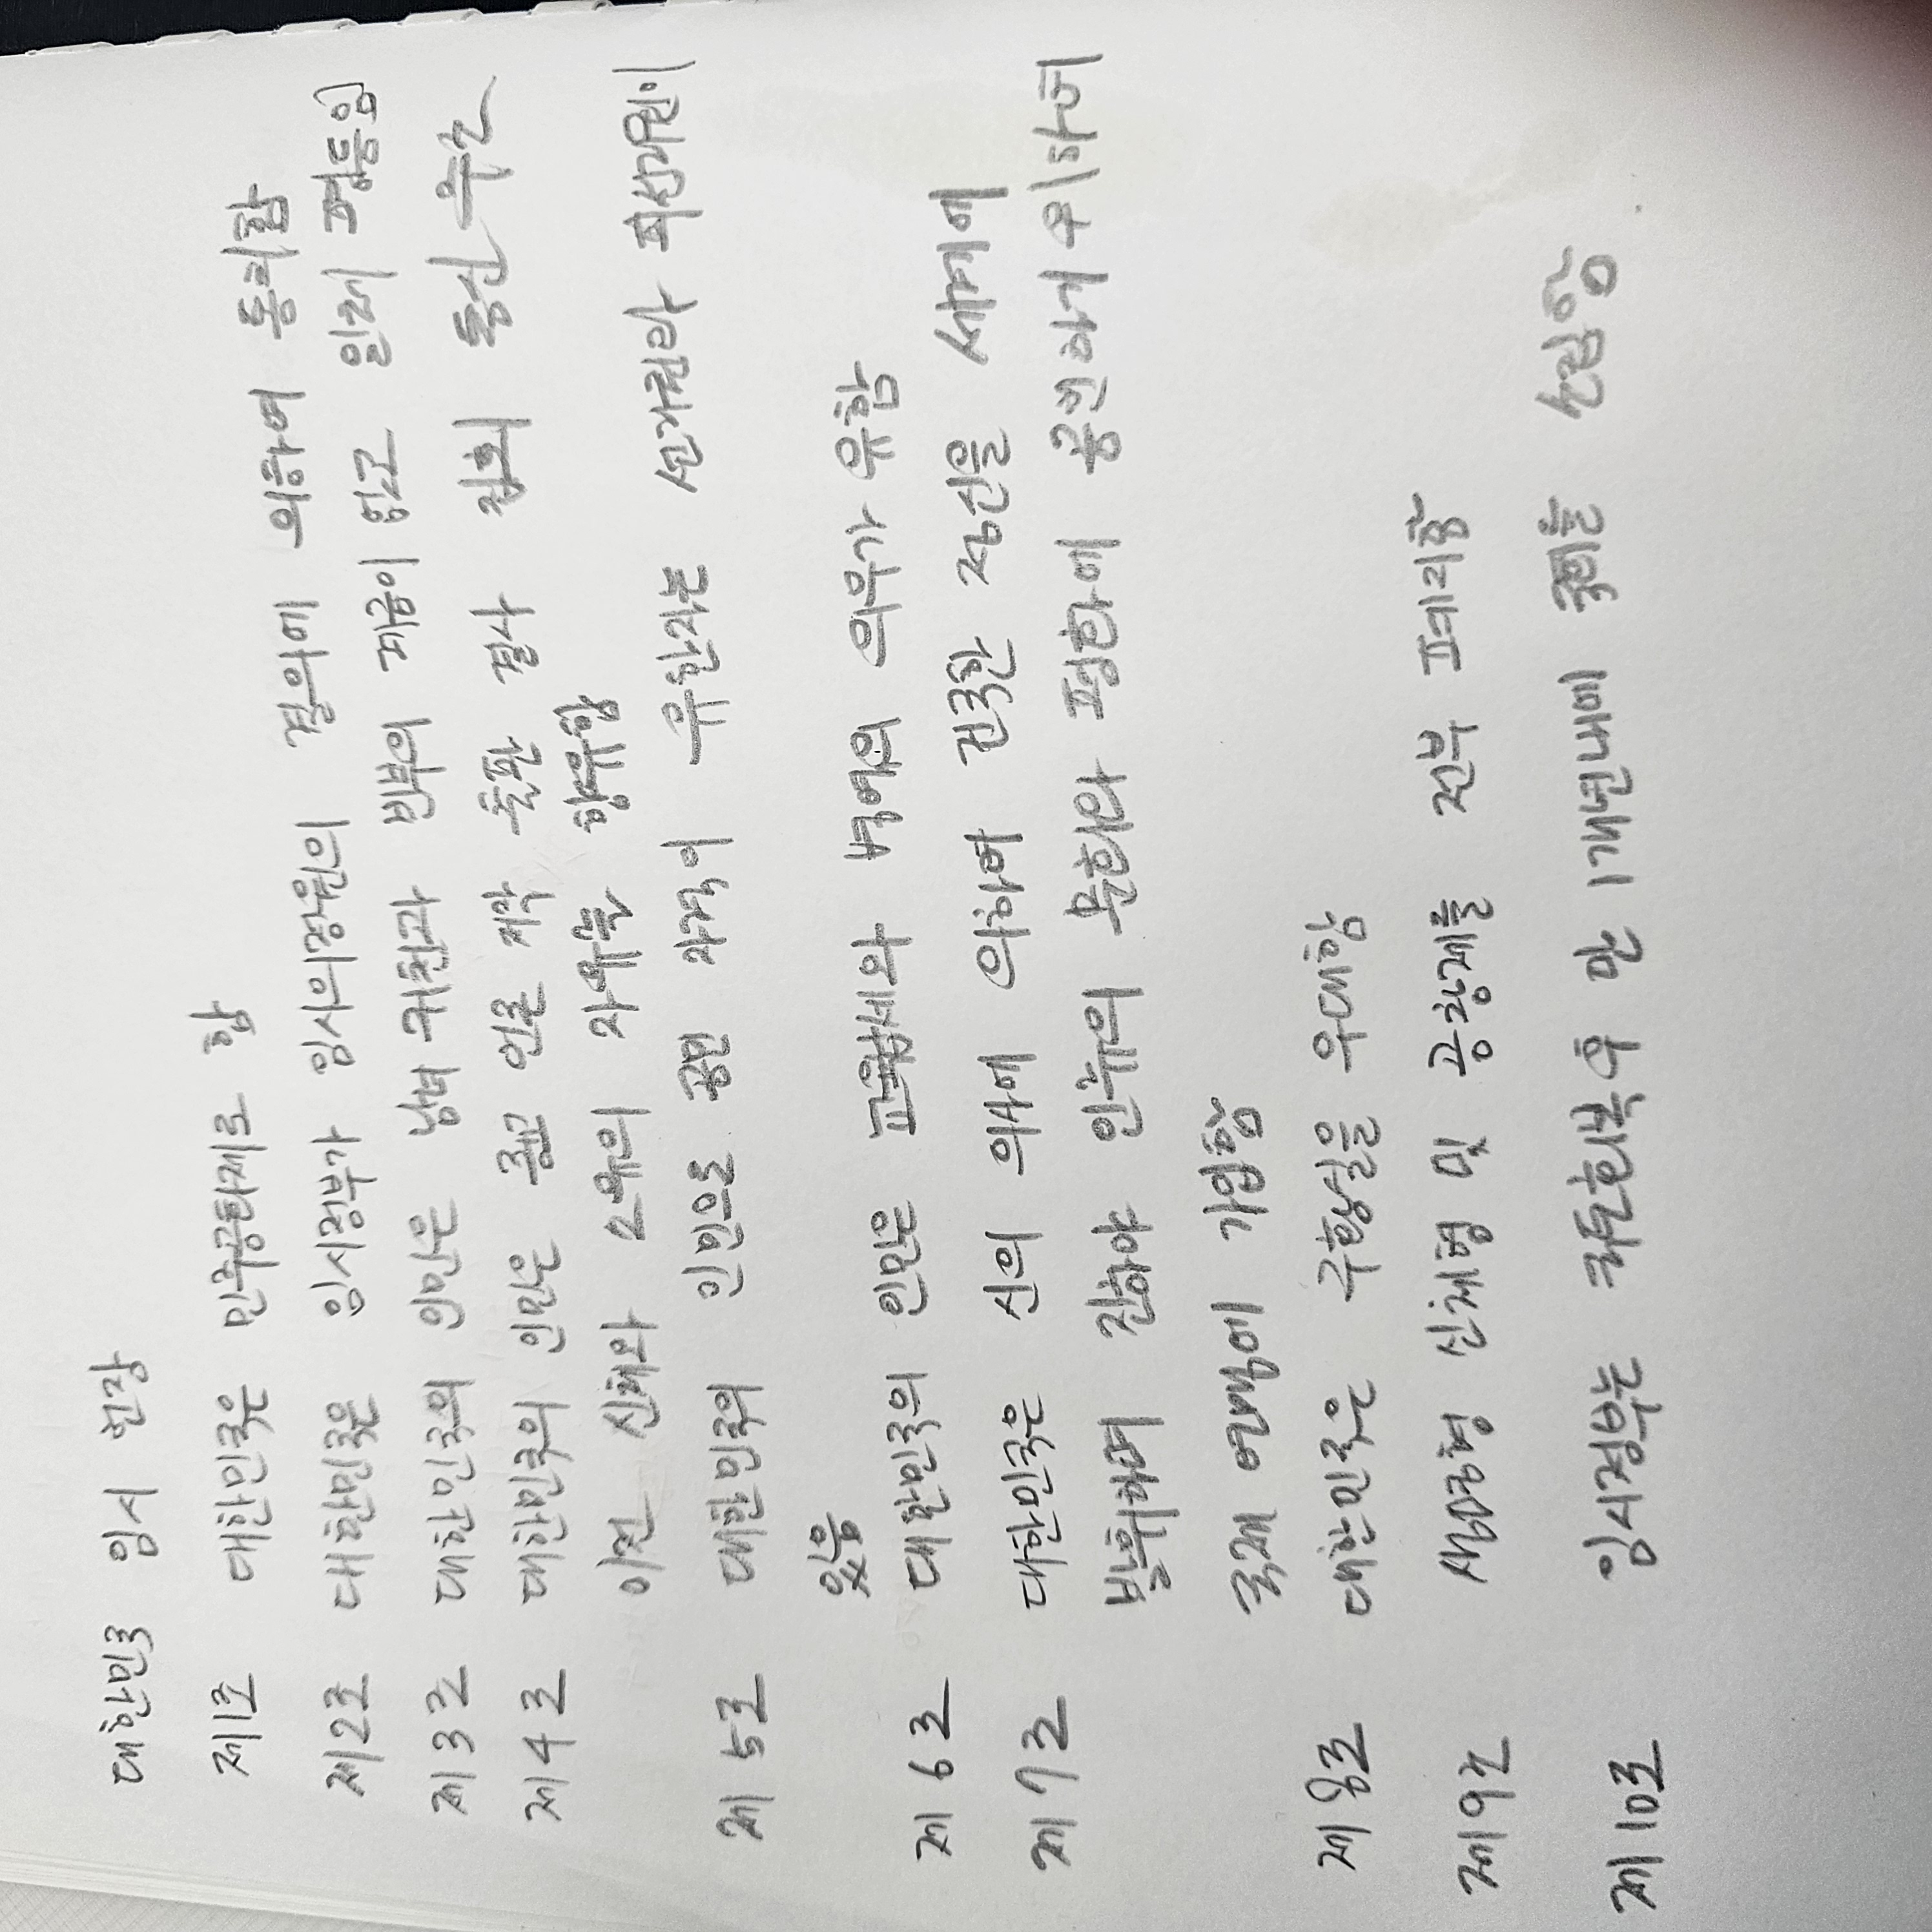 대한민국 임시 헌장
제1조 대한민국은 민주공화제로 함
제2조 대한민국은 임시정부가 임시의정원의 결의에 의하여 통치함
제3조 대한민국의 인민은 남녀 귀천과 빈부의 계급이 없고 일체 평등임
제4조 대한민국의 인민은 종교 언론 저작 출판 결사 집회 통신 주소
이전 신체와 소유의 자유를 향유함
제 5조 대한민국의 인민으로 공민 자격이 유한자는 선거권과 피선거권이
있음
제 6조 대한민국의 인민은 교육납세와 병역의 의무가 유함
제 7조 대한민국은 신의 의사에 의하여 건국한 정신을 세계에
발휘하며 진하야 인류의 문화와 평화에 공헌하기 위하여
국제 연맹에 가입함
제 8조 대한민국은 구황실을 우대함
제 9조 생명형 신체형 및 공창제를 전부 폐지함
제 10조 임시정부는 국토회복후 만 1개년내에 국회를 소집함